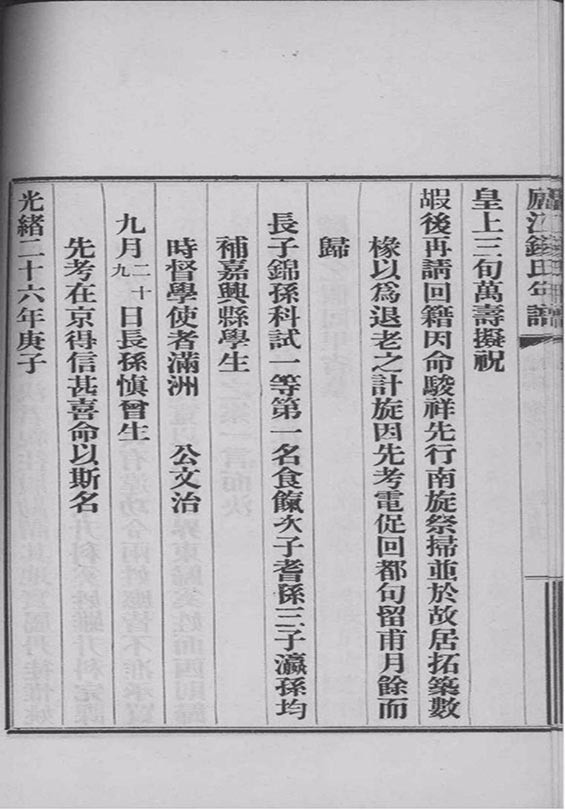 廬江錢氏年譜
皇上三旬萬壽擬祝
嘏後再請回籍因命駿祥先行南旋祭掃並於故居拓築數
椽以爲退老之計旋因先考電促回都句留甫月餘而
歸
長子錦孫科試一等第一名食餼次子耆孫三子瀛孫均
補嘉興縣學生
時督學使者滿洲 公文治
九月二十九日長孫愼曾生
先考在京得信甚喜命以斯名
光緒二十六年庚子